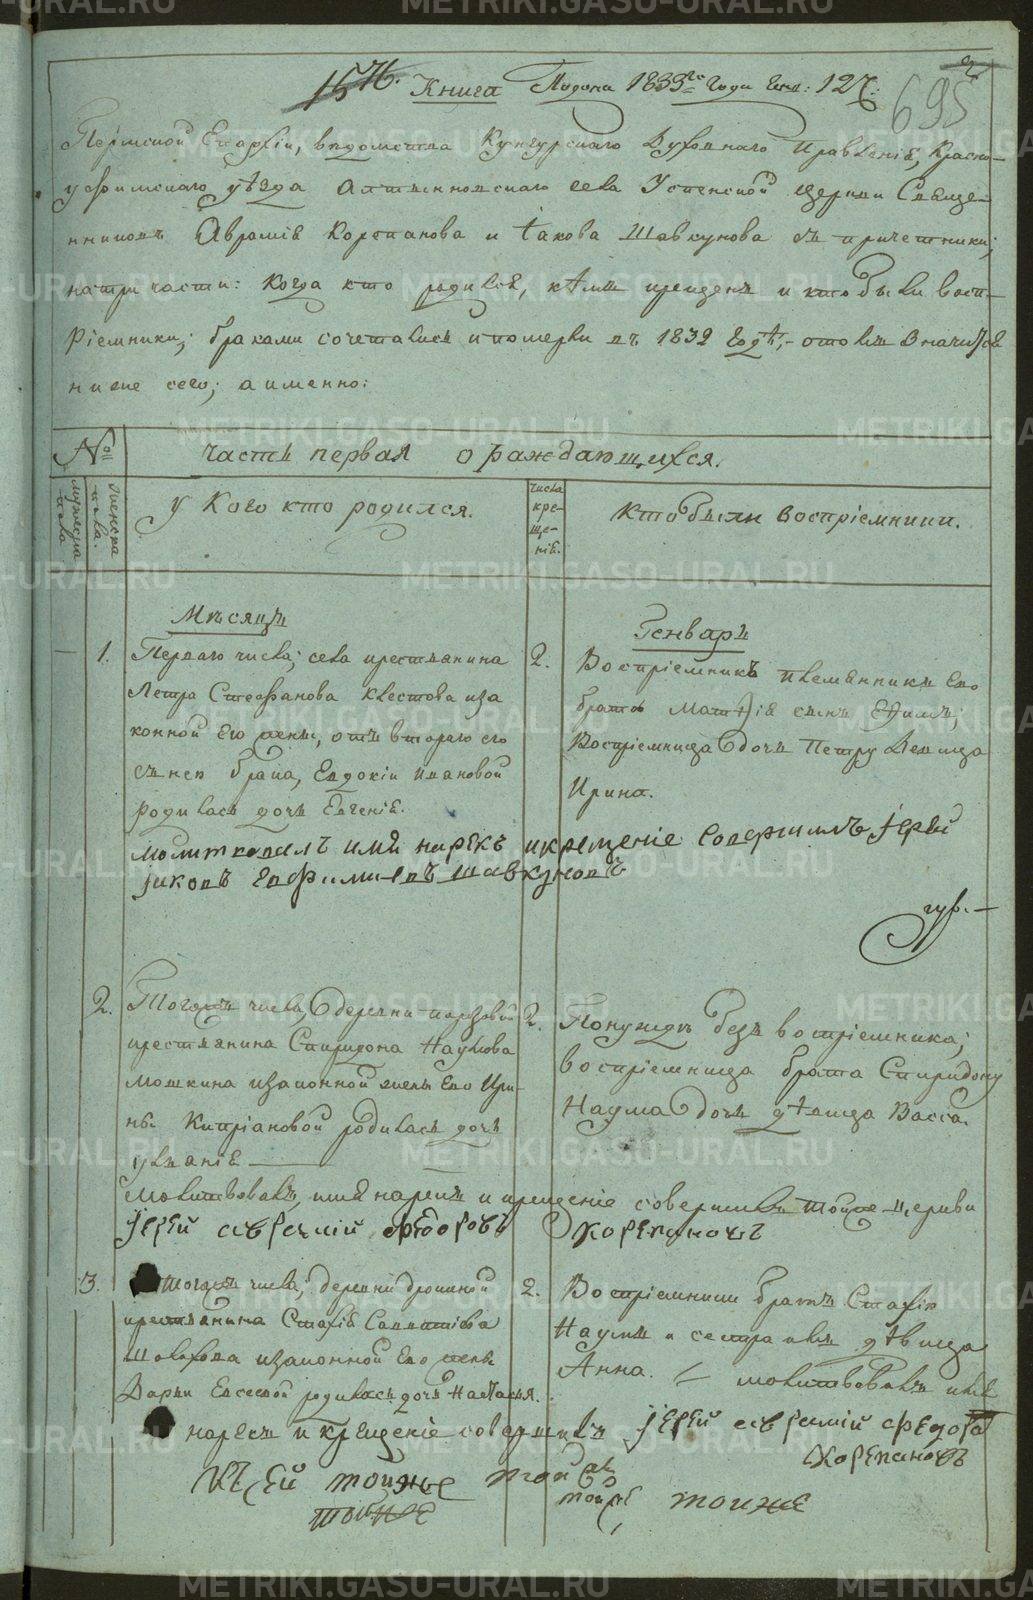 1576. Книга Подана 1833го Года Генв: 12г:
2
695
Пермской Епархіи, ведомства Кунгурскаго Духовнаго Правленія, Красно-
уфимскаго уѣзда Алтыновскаго села Успенской церкви Священ-
никовъ Аврамія Корепанова и Іакова Шавкунова съ причетники;
на три части: когда кто родился, кѣмъ крещенъ и кто были воспр-
ріемники; браками сочетались и померли въ 1832 Годѣ,- о томъ значится
ниже сего; а именно:
№
Часть первая о раждающихся.
мужеска
пола
Женска
пола.
У Кого кто родился.
Числа
кре-
ще-
нія.
Кто были воспріемники.
Мѣсяцъ
Генварь
1.
Перваго числа; села крестьянина
Петра Стефанова Клестова иза
конной его жены, отъ втораго его
съ нею брака, Евдокіи Ивановой
родилась дочь Евгенія.
2.
Воспріемникъ племянникъ его
братъ Матѳія сынъ Ефимъ;
Воспріемница дочь Петру девица
Ирина.
молитвовалъ имя нарекъ и крещеніе совершилъ Іерей
Іаковъ Евфимиевъ Шавкуновъ
2.
Тогожъ числа, деревни
крестьянина Спиридона Наумова
Мошкина изаконной жены его Ири-
ны Кипріановой родилась дочь
Уліанія
2.
По нуждѣ безъ воспріемника;
воспріемница брата Спиридону
Наума дочь дѣвица Васса.
молитвовалъ, имя нарекъ и крещеніе совершилъ тойже церкви
Іерей Аврамій Федоровъ Корепановъ
3.
Тогожъ числа; деревни
крестьянина Стахія Савватіева
Шолохова изаконной его жены
Дарьи Евсевой родилась дочь Настасья.
2.
Воспріемники братъ Стахію
Наумъ и сестра ихъ дѣвица
Анна. молитвовалъ имя
нарекъ и крещеніе совершилъ Іерей Аврамій Федоровъ
Корепановъ
тойже
тойже
тойже